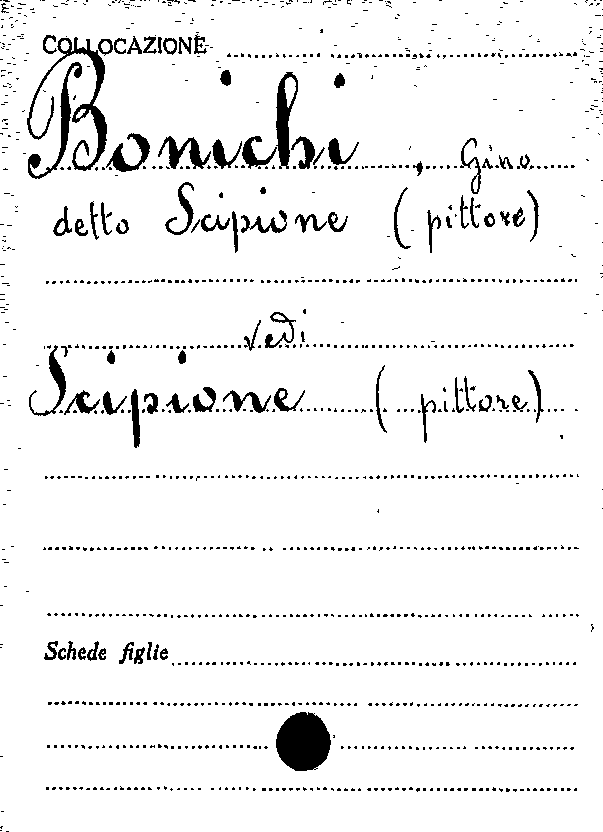 COLLOCAZIONE
Bonichi, Gino
detto Scipione (pittore)
vedi
Scipione (pittore)
Schede figlie